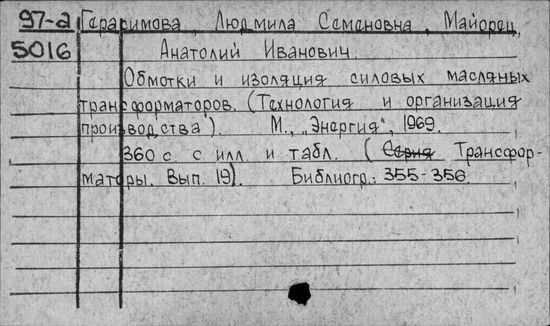 97-а Герасимова, Людмила Семеновна, Майорец,
5016 Анатолий Иванович.
Обмотки и изоляция силовых масляных
трансформаторов. (Технология и организация
производства). М., „Энергия", 1969.
360 с. с илл. и табл. (Серия Трансфор-
маторы. Вып. 19). Библиогр.: 355-356.